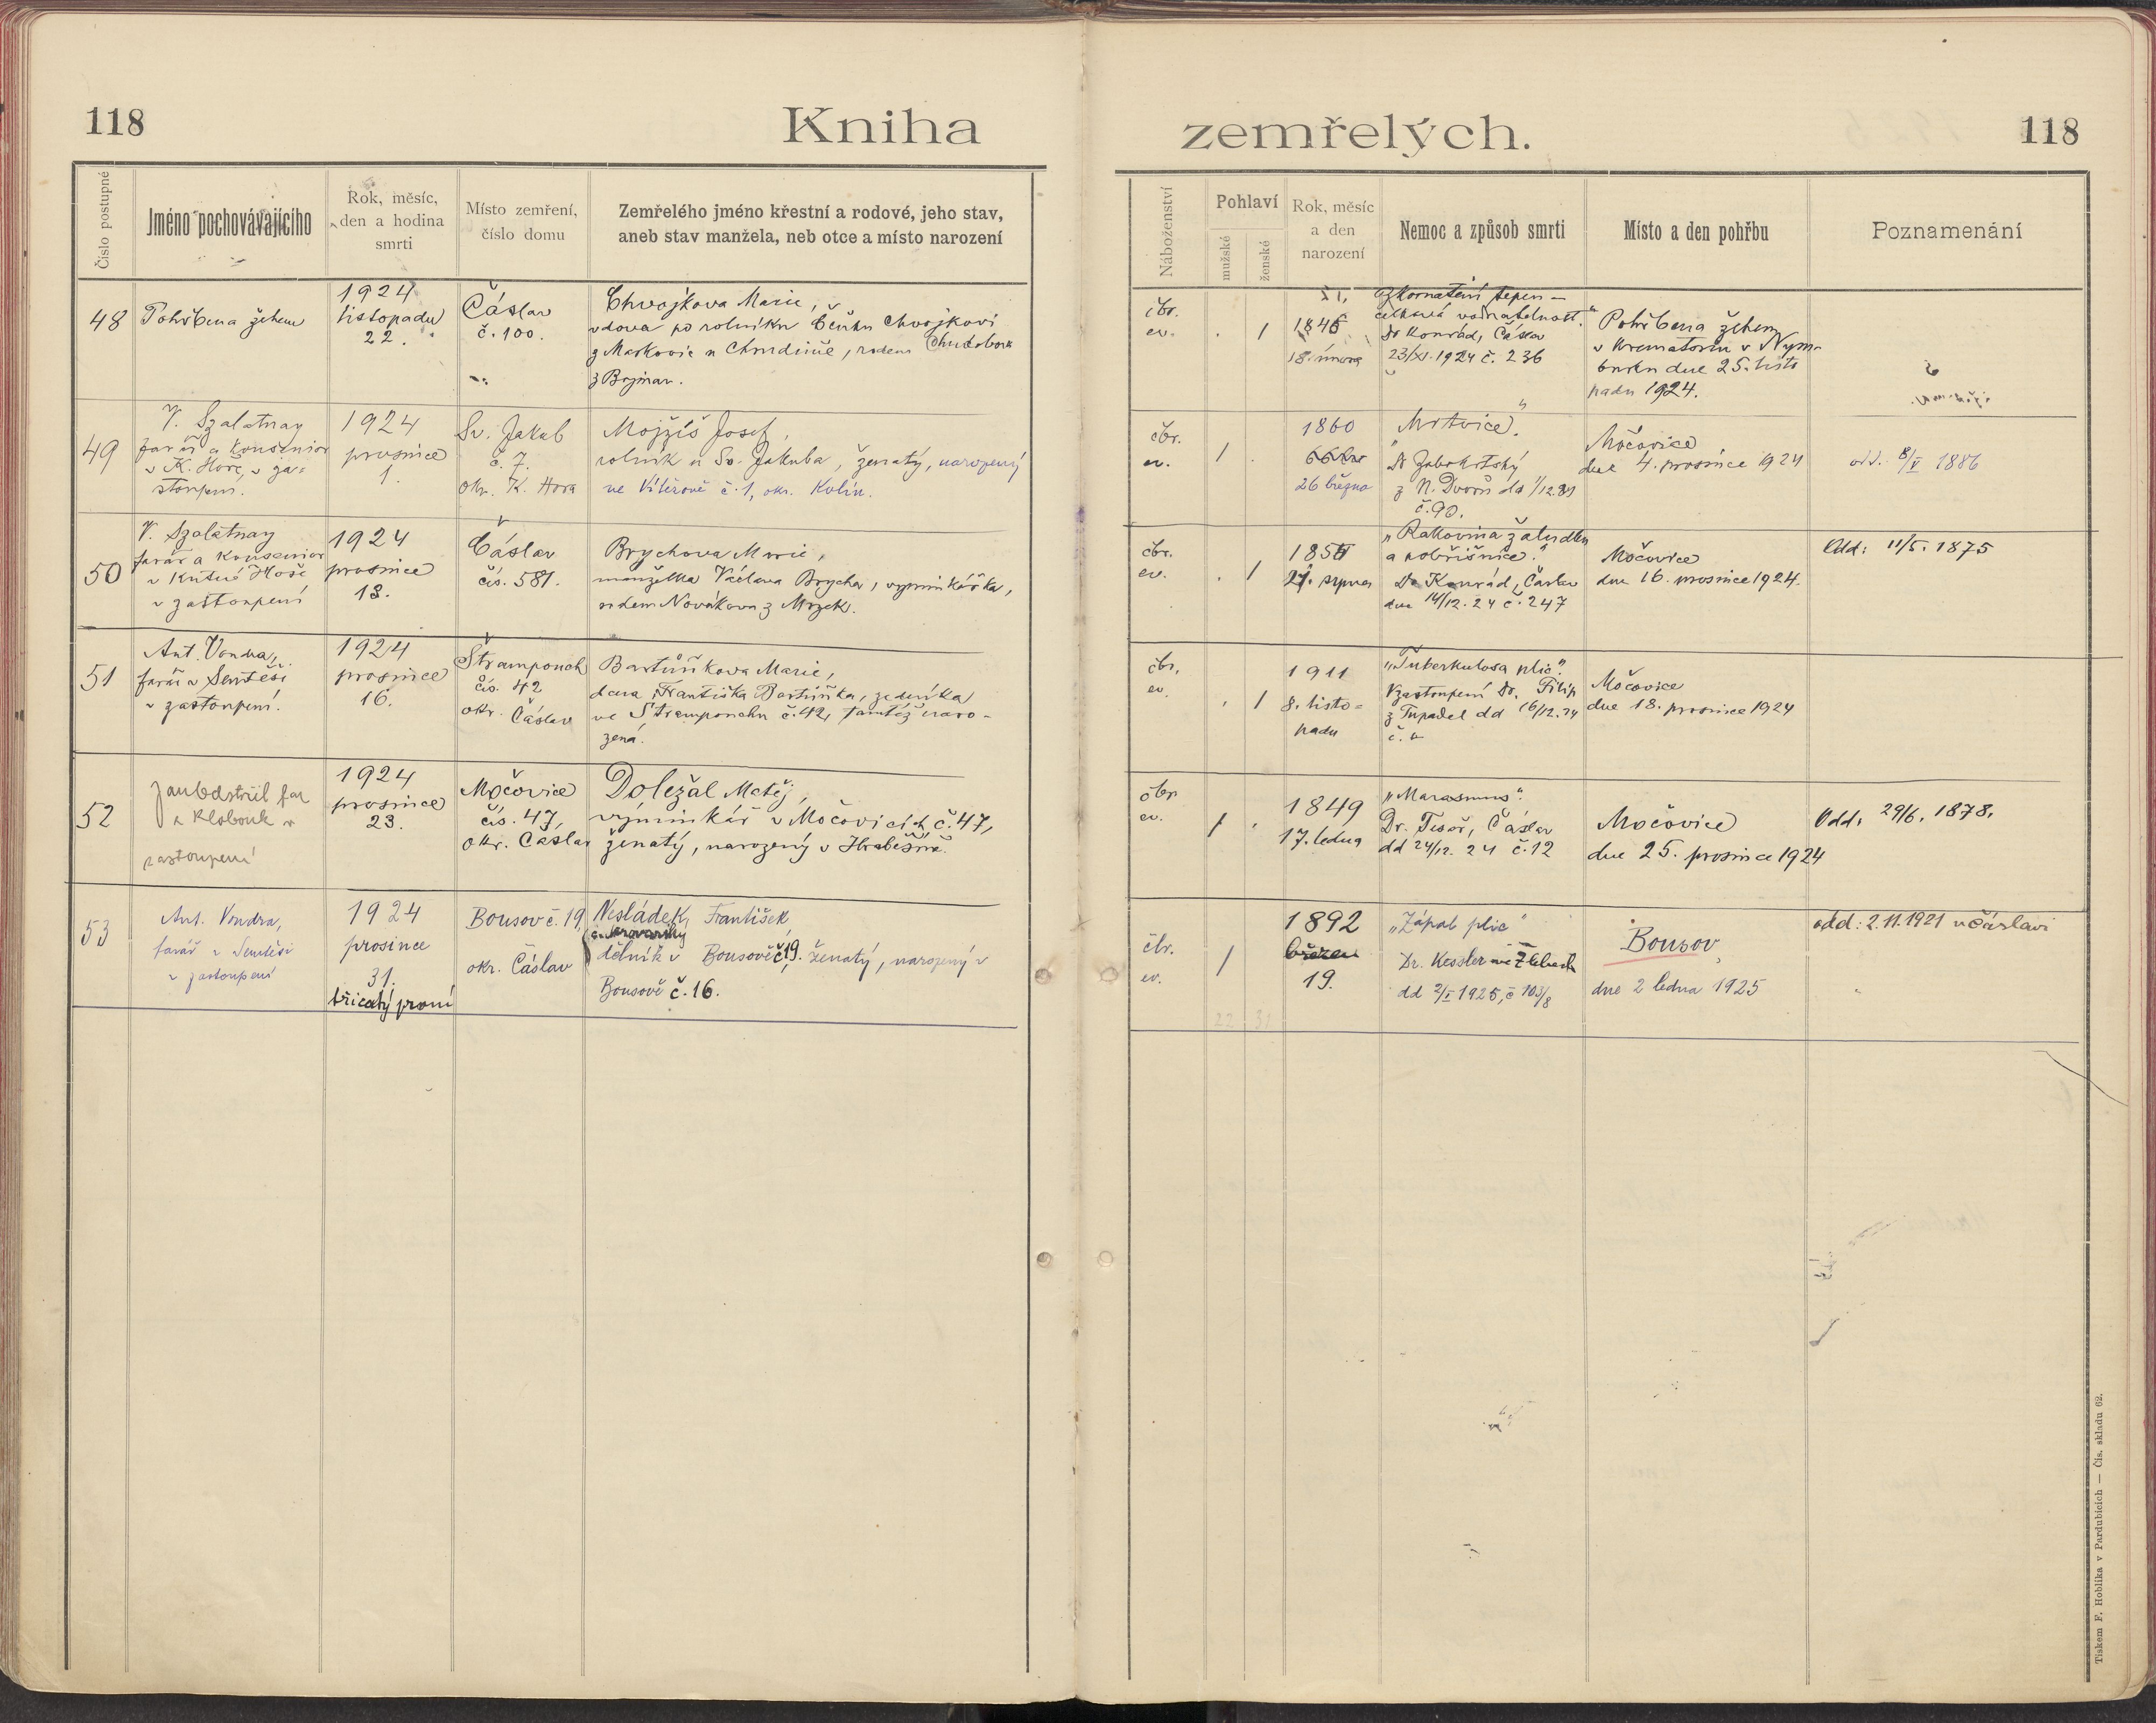 118
Kniha
zemřelých.
118
Číslo postupné
Jméno pochovávajícího
Rok, měsíc,
den a hodina
smrti
Místo zemření,
číslo domu
Zemřelého jméno křestní a rodové, jeho stav,
aneb stav manžela, neb otce a místo narození
Náboženství
Pohlaví
mužské
ženské
Rok, měsíc
a den
narození
Nemoc a způsob smrti
Místo a den pohřbu
Poznamenání
48
Pohřbena žehem
1924
listopadu
22.
Čáslav
č. 100.
Chvojkova Marie,
vdova po rolníku Čeňku Chvojkovi
z Markovic u Chrudimě, rodem
čbr.
ev.
1
18. února
zkornatění tepen –
Dr Konrád, Čáslav
23/XI. 1924 č. 236
Pohřbena žehem
v krematoriu v Nym-
burku dne 25. listo
padu 1924.
49
V. Szalatnay
farář a konsenior
v K. Hoře, v za=
stoupení.
1924
prosince
1.
Sv. Jakub
č. 7.
okr. K. Hora
Mojžíš Josef,
rolník u Sv. Jakuba, ženatý, narozený
ve Vítězově č. 1, okr. Kolín.
čbr.
ev.
1
1860
26 března
„Mrtvice“.
z N. Dvorů
č. 90.
Močovice
dne 4. prosince 1924
odd. 8/V 1886
50
V. Szalatnay
farář a konsenior
v Kutné Hoře
v zastoupení
1924
prosince
13.
Čáslav
čís. 581.
Brychova Marie,
manželka Václava Brycha, výminkářka,
rodem Novákova z
čbr.
ev.
1
srpna
„Rakovina žaludku
a pobřišnice.“
Dr Konrád, Čáslav
dne 14/12. 24 č. 247
Močovice
dne 16. prosince 1924.
Odd: 11/5. 1875
51
Ant. Vondra,
farář v Semtěši
v zastoupení.
1924
prosince
16.
Štrampouch
čís. 42
okr. Čáslav
Bartůňkova Marie,
dcera Františka Bartůňka, zedníka
ve Štrampouchu č. 42, tamtéž naro-
zená.
čbr.
ev.
1
1911
8. listo=
padu
„Tuberkulosa plic“.
V zastoupení Dr. Filip
z Tupadel dd 16/12. 24
č. "
Močovice
dne 18. prosince 1924
52
far
z Klobouk v
zastoupení
1924
prosince
23.
Močovice
čís. 47,
okr. Čáslav
Doležal Matěj,
výminkář v Močovicích č. 47,
ženatý, narozený v Hraběšíně.
čbr
ev.
1
1849
17. ledna
„Marasmus“.
Dr. Tesař, Čáslav
dd 24/12. 24 č. 12
Močovice
dne 25. prosince 1924
Odd: 29/6. 1878.
53
Ant. Vondra,
farář v Semtěši
v zastoupení
1924
prosince
31.
třicátý první
Bousov č. 19,
okr. Čáslav
Nesládek, František,
cukrovarský
dělník v Bousově č. 19. ženatý, narozený v
Bousově č. 16.
čbr.
ev.
1
1892
březen
19.
„Zápal plic“
Dr. Kessler ve Žlebech
dd 2/I 1925, č 103/8
Bousov,
dne 2 ledna 1925
odd: 2. 11. 1921 v Čáslavi
22 31
Tiskem F. Hoblíka v Pardubicích — Čís. skladu 62.